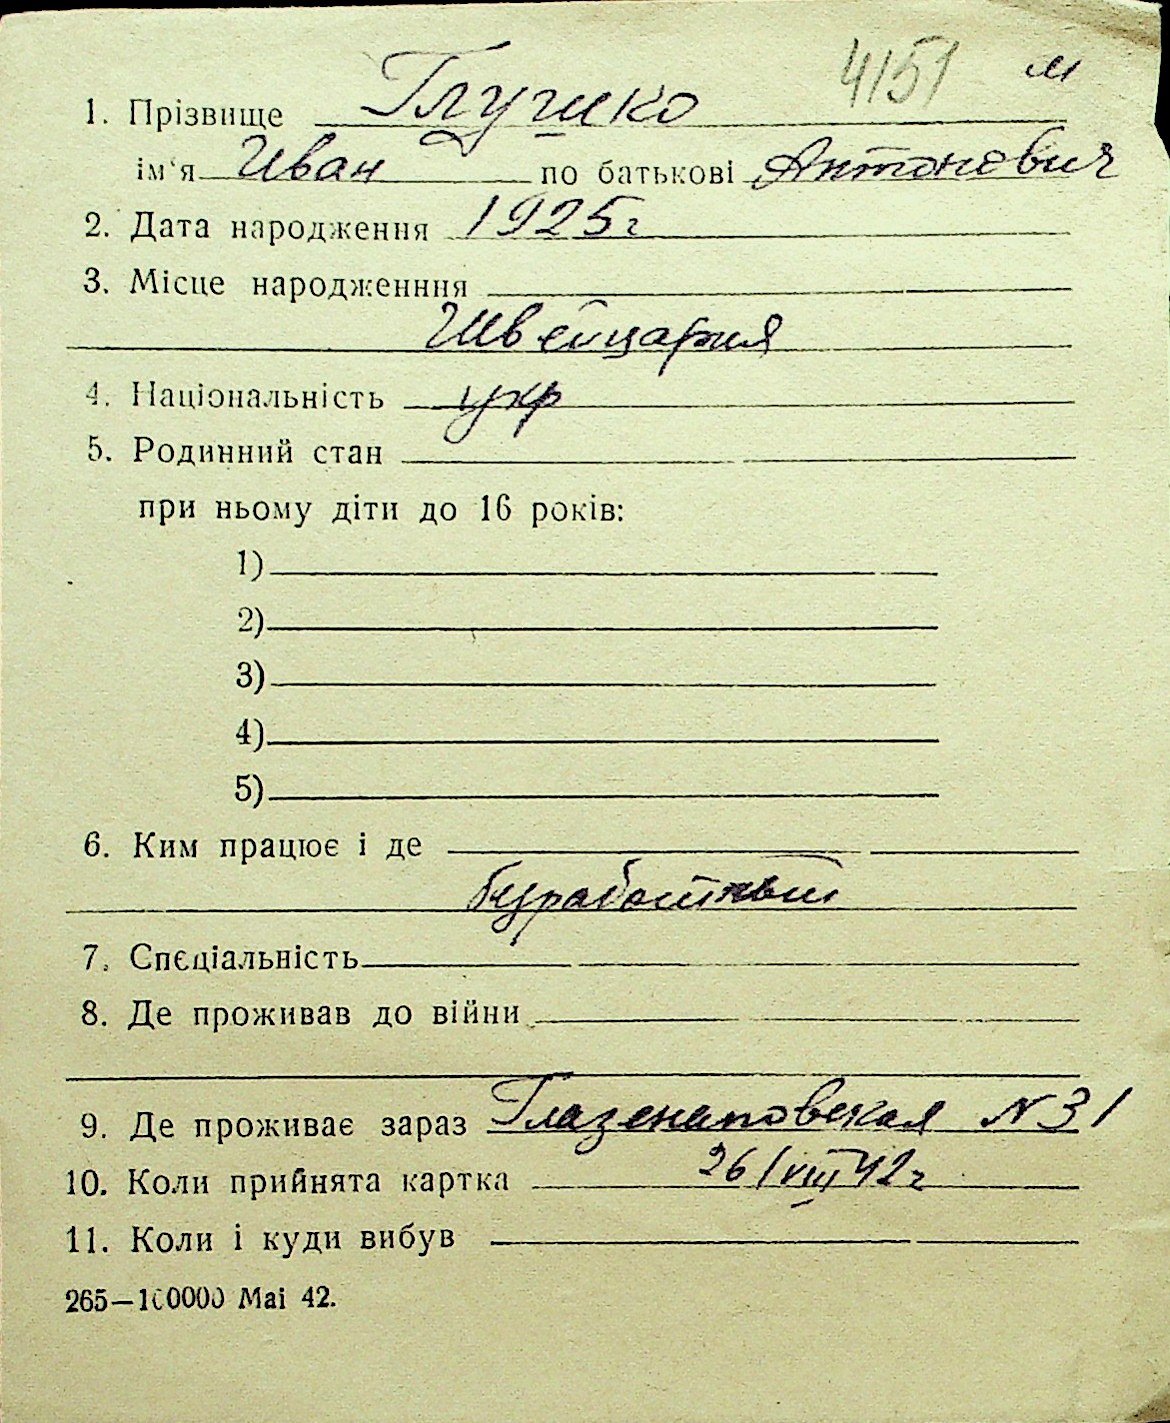 4151 м
1. Прізвище Глушко
ім'я Иван по батькові Антонович
2. Дата народження 1925г
3. Місце народженння
Швейцария
4. Національність укр
5. Родинний стан
при ньому діти до 16 років:
1)
2)
3)
4)
5)
6. Ким працює і де
безработный
7. Спеціальність
8. Де проживав до війни
9. Де проживає зараз Глазенаповская N 31
10. Коли прийнята картка 26/VIII 42г
11. Коли і куди вибув
265—100000 Mai 42.